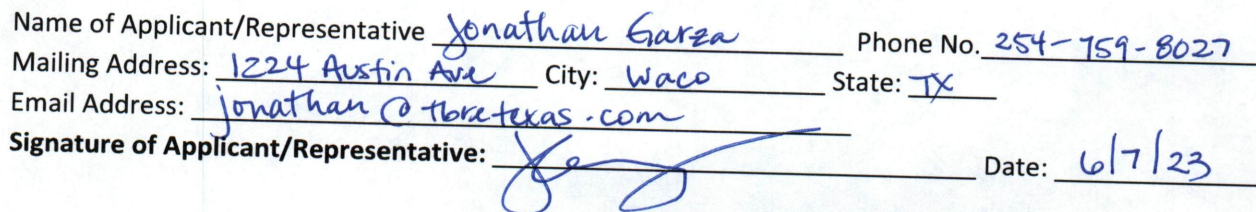 Name of Applicant/Representative Jonathan Garza Phone No. 254-759-8027
Mailing Address: 1224 Austin Ave City: Waco State: TX
Email Address: jonathan@tbretexas.com
Signature of Applicant/Representative: Date: 6/7/23